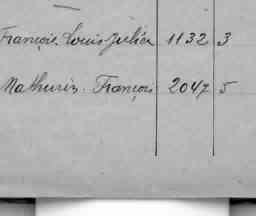 François Louis Julien 1132 3
Mathurin. François 2047 5